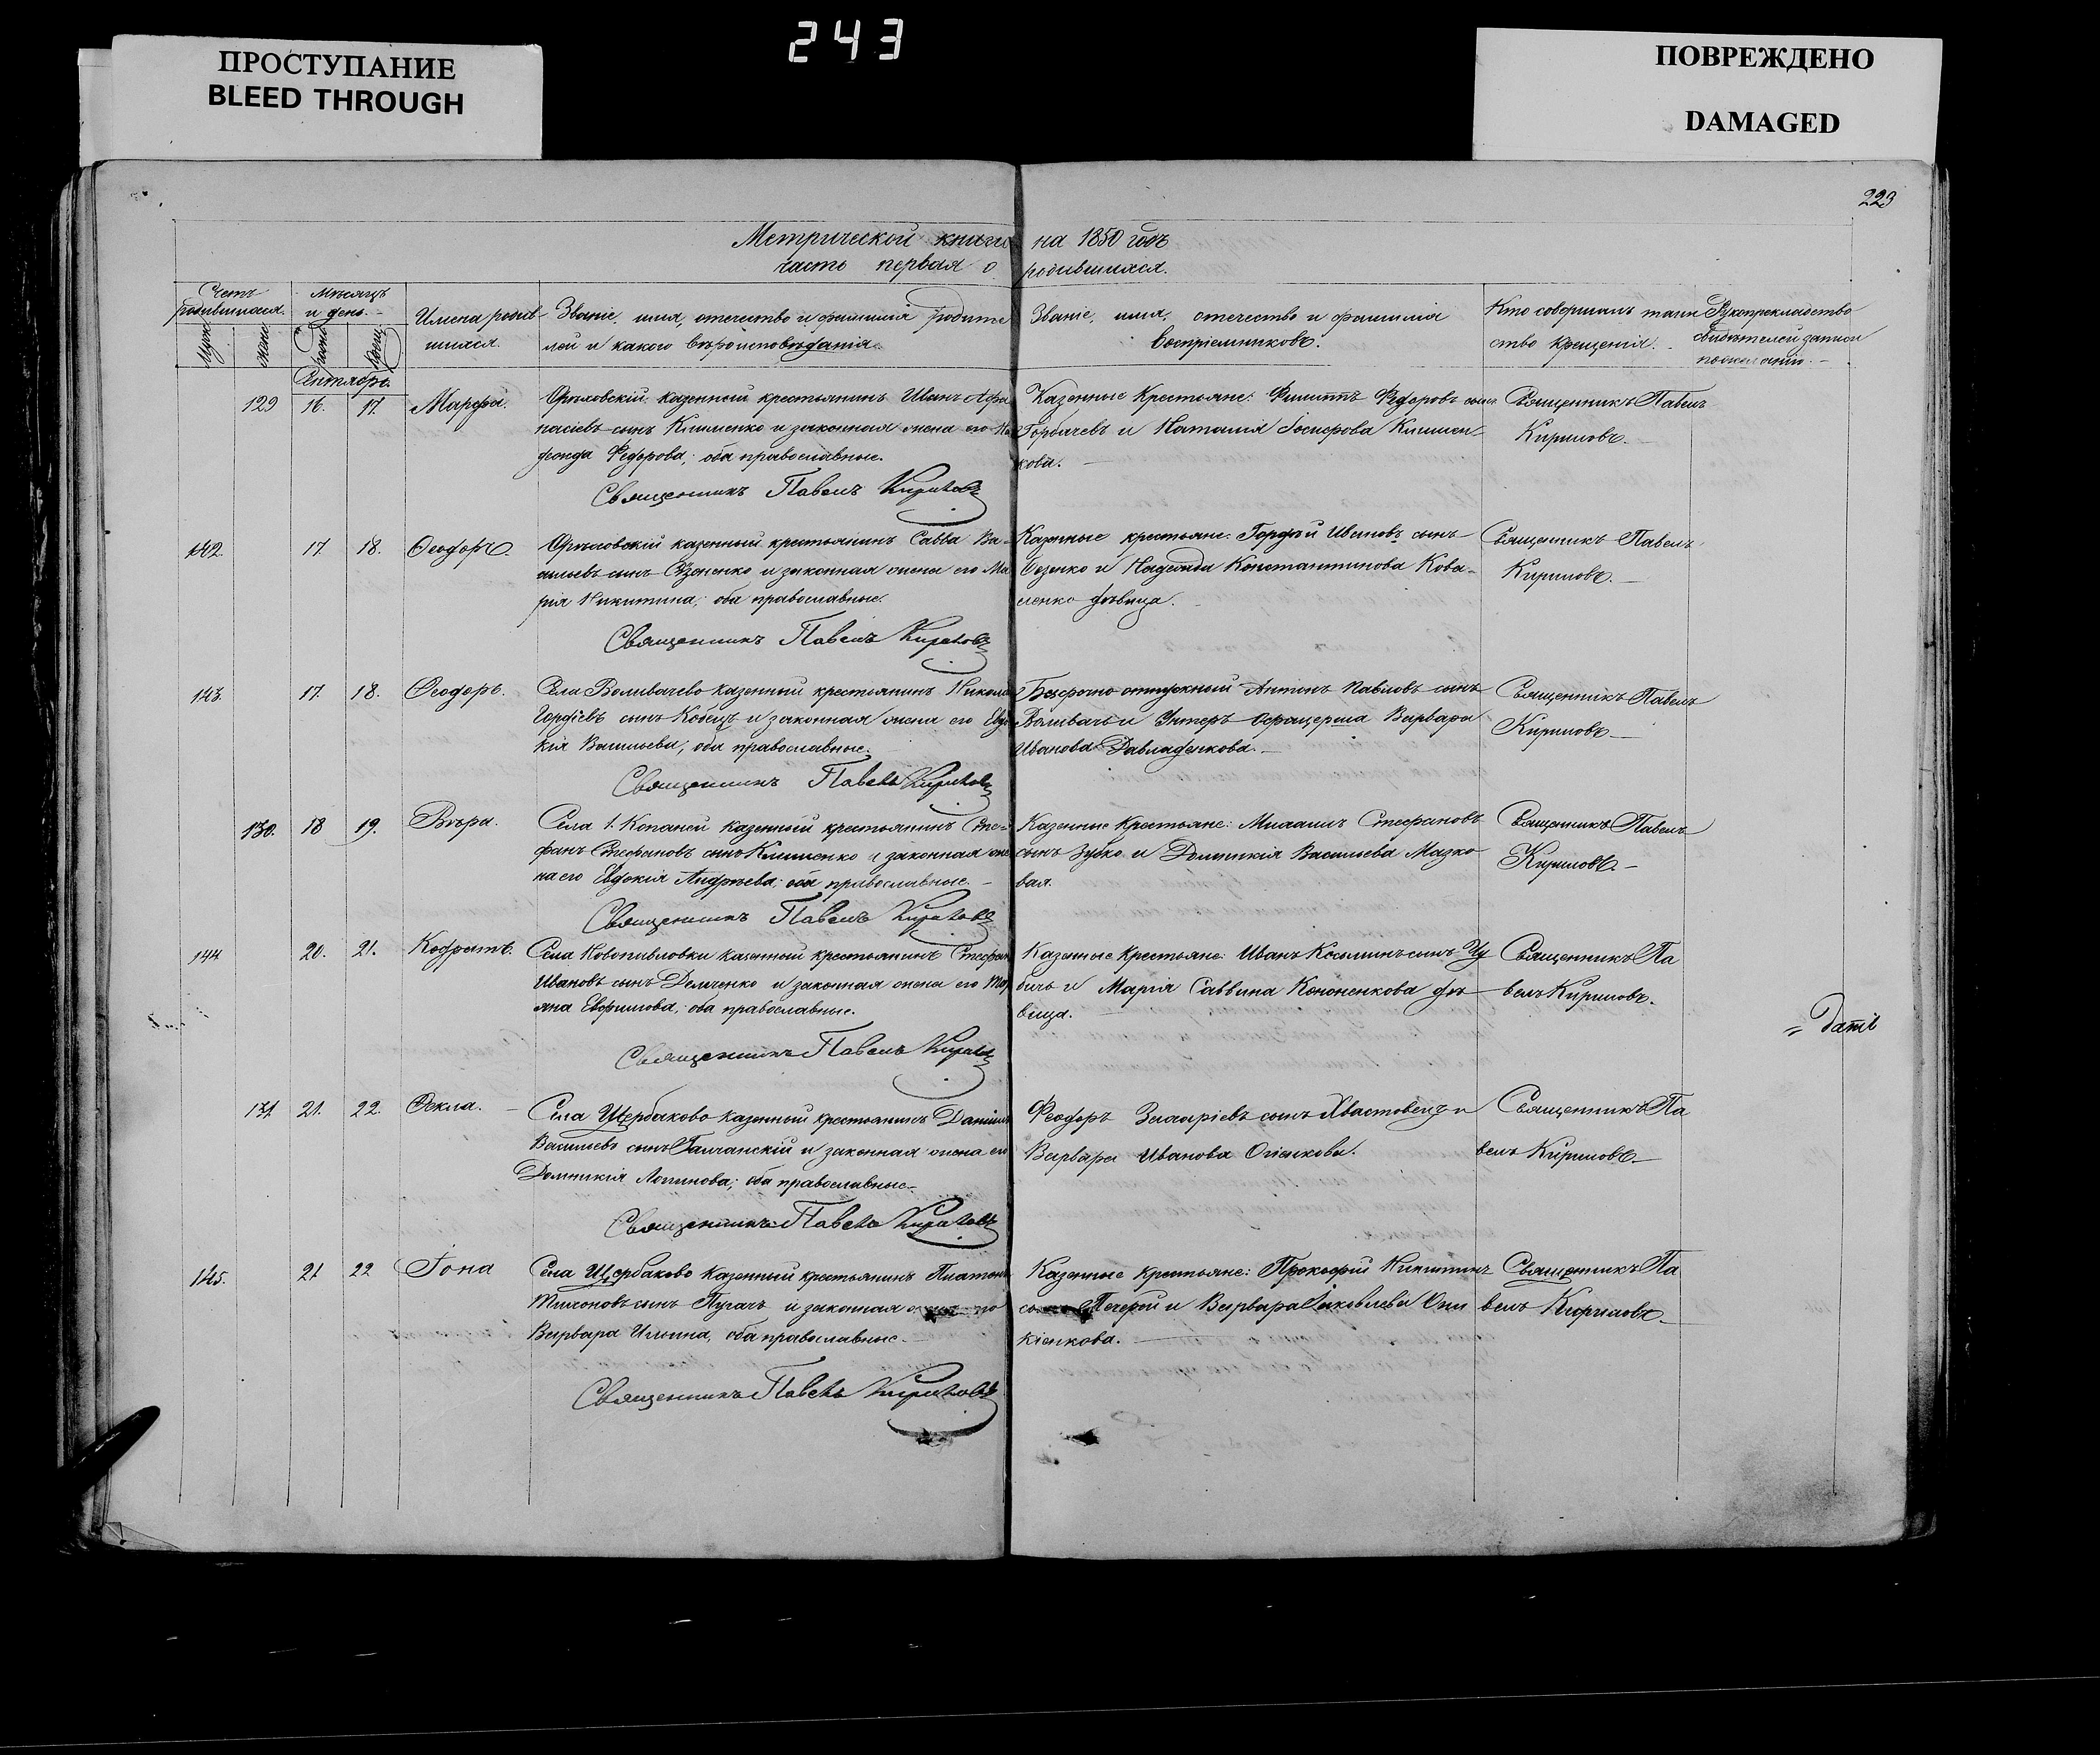 243
ПРОСТУПАНИЕ
BLEED THROUGH
ПОВРЕЖДЕНО
DAMAGED
223
Метрической книги на 1850 годъ
часть первая о родившихся.
Счетъ родившихся.
Мѣсяцъ и день.
Имена родив-
шихся.
Званіе, имя, отечество и фамилія родите
лей и какого вѣроисповѣданія.
Званіе, имя, отечество и фамилія
воспріемниковъ.
Кто совершалъ таин
ство крещенія.
Рукоприкладство
свидѣтелей записи
по желанію.
Сентябрь.
129 16. 17. Марфа.
Орѣховскій казенный крестьянинъ Иванъ Афа
насіевъ сынъ Клименко и законная жена его На
дежда Федорова; оба православные.
Священникъ Павелъ Кириловъ
Казенные Крестьяне: Филиппъ Федоровъ сынъ
Горбачевъ и Наталія Іосифова Климен-
кова.
Священникъ Павелъ
Кириловъ.
142. 17. 18. Ѳеодоръ.
Орѣховскій казенный крестьянинъ Савва Ва-
сильевъ сынъ и законная жена его Ма
рія Никитина; оба православные.
Священникъ Павелъ Кириловъ
Казенные крестьяне: Гордѣй Ивановъ сынъ
и Надежда Константинова Кова-
ленко дѣвица.
Священникъ Павелъ
Кириловъ.
143. 17. 18. Ѳеодоръ.
Села Воливачево казенный крестьянинъ Никола
Гордіевъ сынъ Кобецъ и законная жена его Евдо
кія Васильева; оба православные.
Священникъ Павелъ Кириловъ
Безсрочно отпускной Антонъ Павловъ сынъ
Воливачъ и Унтеръ офицерша Варвара
Иванова
Священникъ Павелъ
Кириловъ
130. 18 19. Вѣра.
Села 1. Копаней казенный крестьянинъ Сте-
фанъ Стефановъ сынъ Клименко и законная же
на его Евдокія Андрѣева; оба православные.
Священникъ Павелъ Кириловъ
Казенные Крестьяне: Михаилъ Стефановъ
сынъ Зубко и Домникія Васильева Мазко
вая.
Священникъ Павелъ
Кириловъ.
144 20. 21. Кодратъ.
Села Новопавловки казенный крестьянинъ Стефанъ
Ивановъ сынъ Демченко и законная жена его Мар
яна Евфимова; оба православные.
Священникъ Павелъ Кириловъ
Казенные Крестьяне: Иванъ Косминъ сынъ Чу
бичъ и Марія Саввина Кононенкова дѣ
вица.
Священникъ Па
велъ Кириловъ.
131 21. 22. Ѳекла.
Села Щербаково казенный крестьянинъ Даніилъ
Васильевъ сынъ Галчанскій и законная жена его
Домникія Логинова; оба православные.
Священникъ Павелъ Кириловъ
Феодоръ Захаріевъ сынъ Хвастовецъ и
Варвара Иванова
Священникъ Па
велъ Кириловъ
145. 21 22 Іона
Села Щербаково казенный крестьянинъ Платонъ
Тихоновъ сынъ Пугачъ и законная жена его
Варвара Ильина, оба православные.
Священникъ Павелъ Кириловъ
Казенные крестьяне: Прокофій Никитинъ
и Варвара Іаковлева Они
кіенкова.
Священникъ Па
велъ Кириловъ